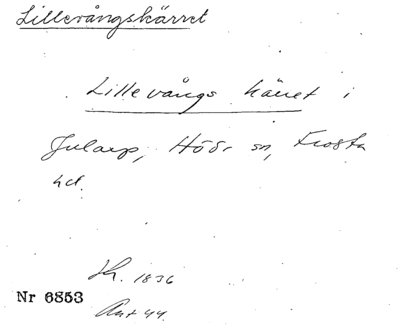 Lillevångskärret
Lillevångs kärret i
Jularp, Höör sn, Frosta
hd.
Sk. 1836
Nr 6853
Ant 44